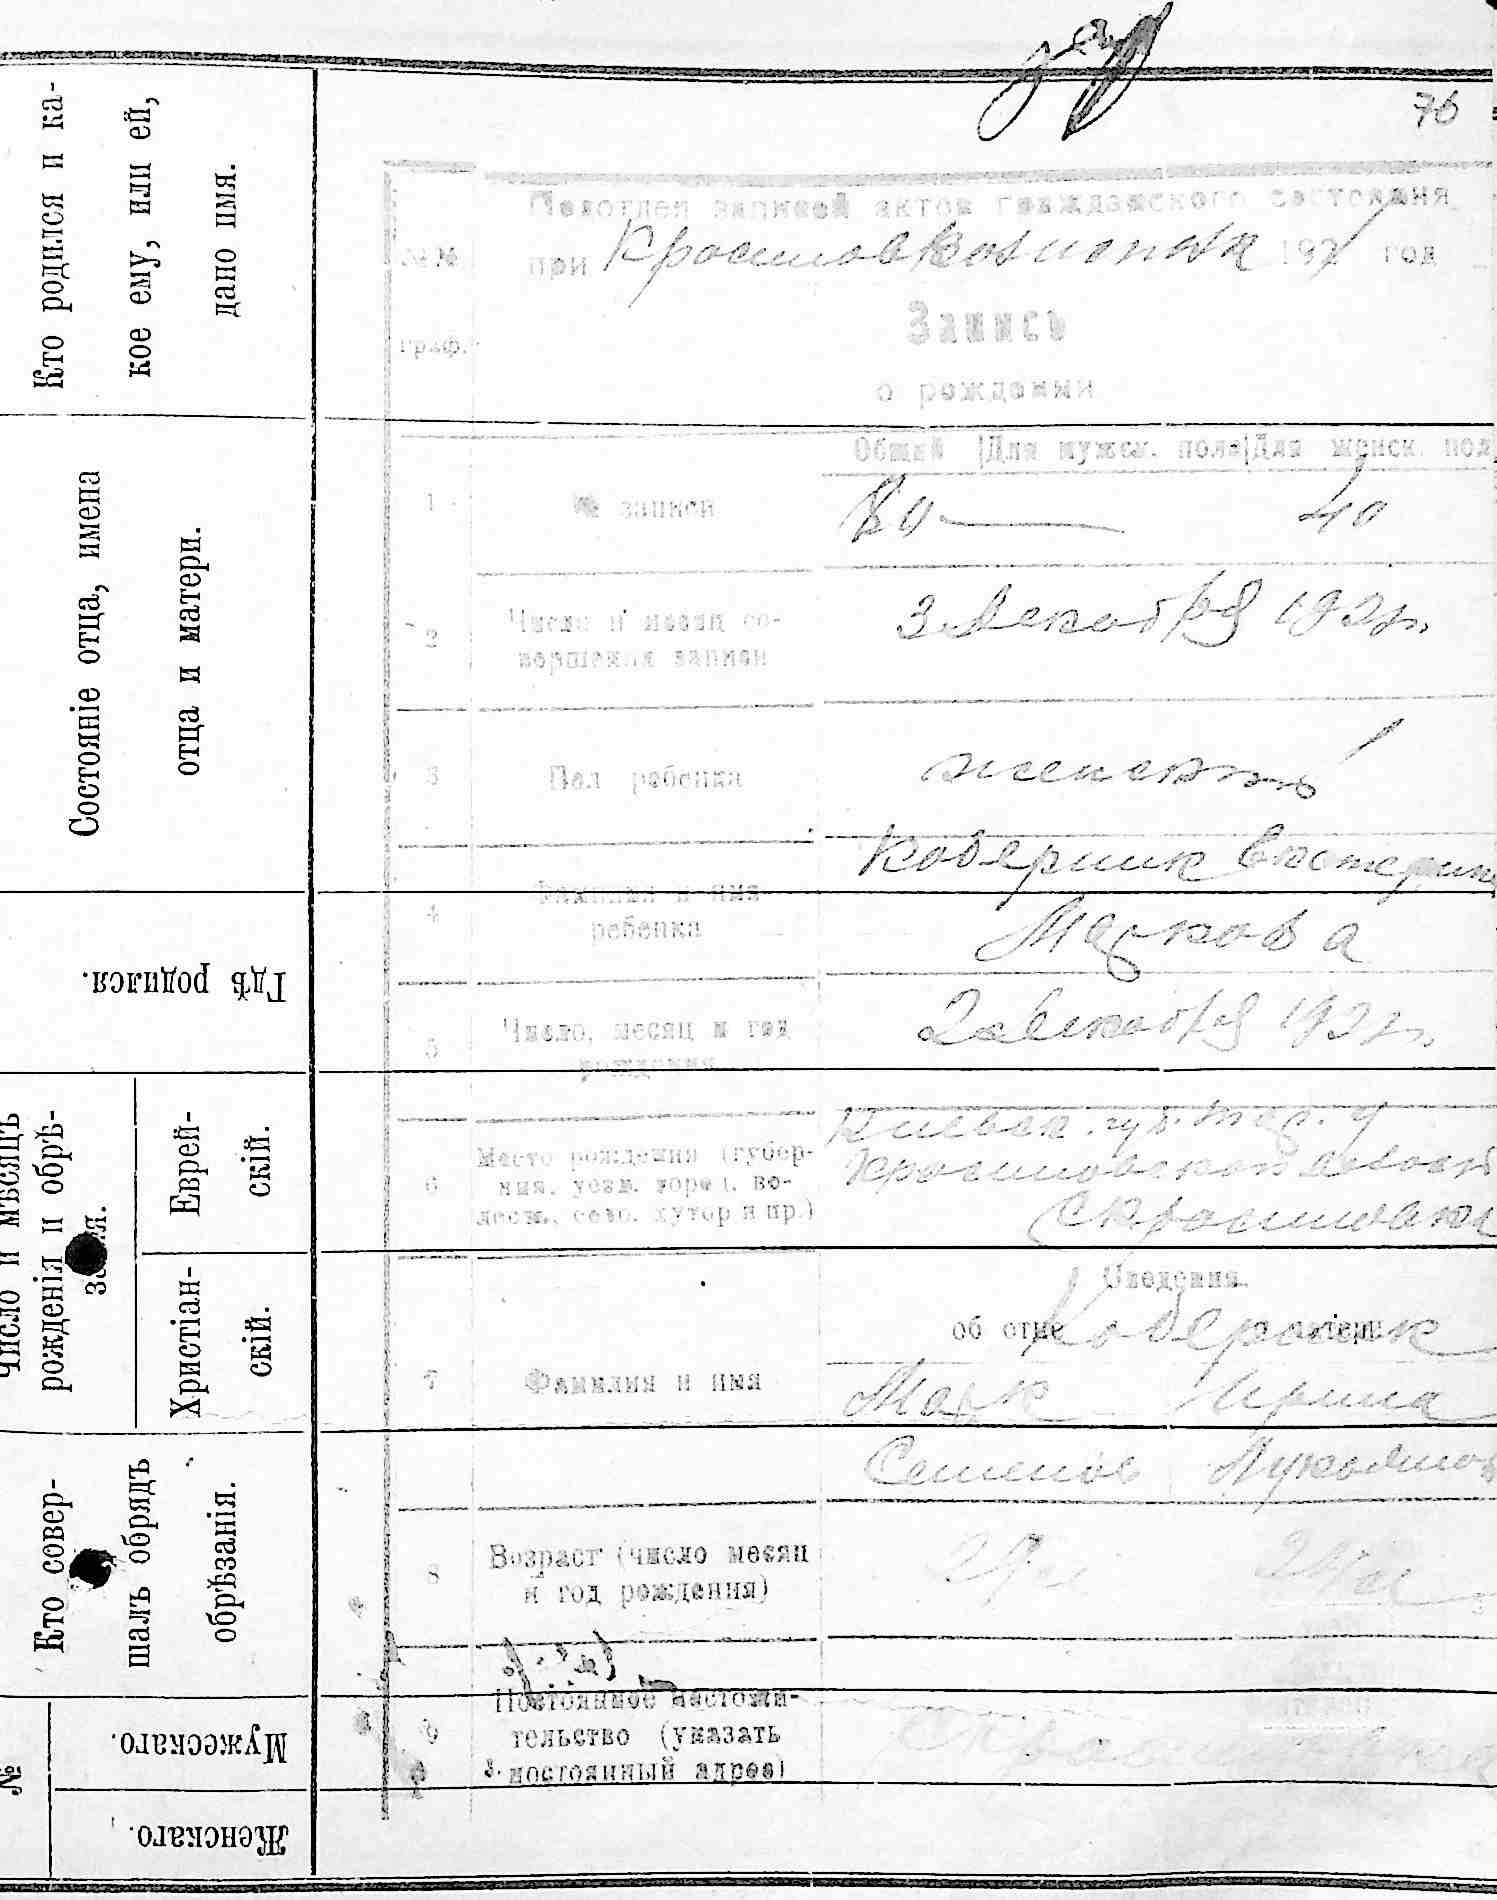 Кто родился и ка-
кое ему, или ей,
дано имя.
Состояніе отца, имена
отца и матери.
Гдѣ родился.
Число и мѣсяцъ
рожденія и обрѣ-
Еврей-
скій.
Христіан-
скій.
Кто совер-
шалъ обрядъ
обрѣзанія.
№
Мужескаго.
Женскаго.
76
Подотдел записей актов гражданского состояния
при 192 год
№№
граф.
Запись
о рождении
Общий Для мужск. пола Для женск. пол
1 № записи 80 — 40
2 Число и месяц со-
вершения записи
3 Декабря 192
3 Пол ребенка женский
4 Фамилия и имя
ребенка
Кодерник Екатерина
Маркова
5 Число, месяц и год
рождения
2 Декабря 192
6 Место рождения (губер-
ния, уезд, город, во-
лость, село, хутор и пр.)
Киевск. губ. у
Сведения
об отце о матери
Кодерник
7 Фамилия и имя
Марк Ирина
Семенов
8 Возраст (число месяц
и год рождения)
9 Постоянное местожи-
тельство (указать
постоянный адрес)